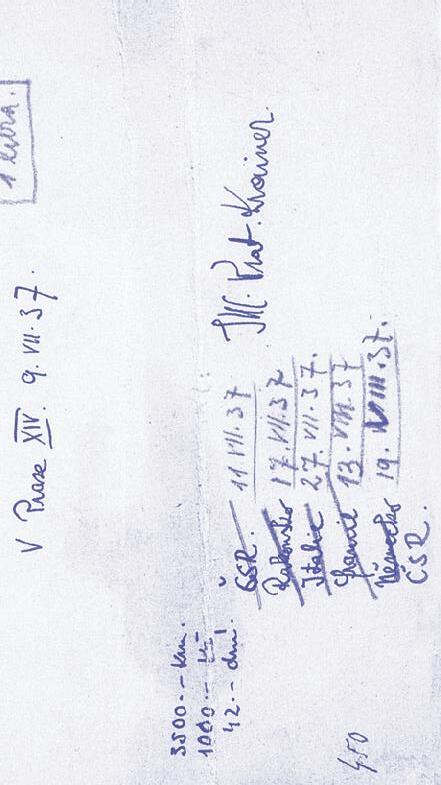 V Praze XIV. 9. VII. 37.
3500.-- km.
1000.-- 
42.-- dní
ČSR. 11 VII. 37
Rakousko 17. VII. 37
Italie 27. VII. 37.
13. VIII. 37
Německo 19. VIII. 37.
ČSR.
450